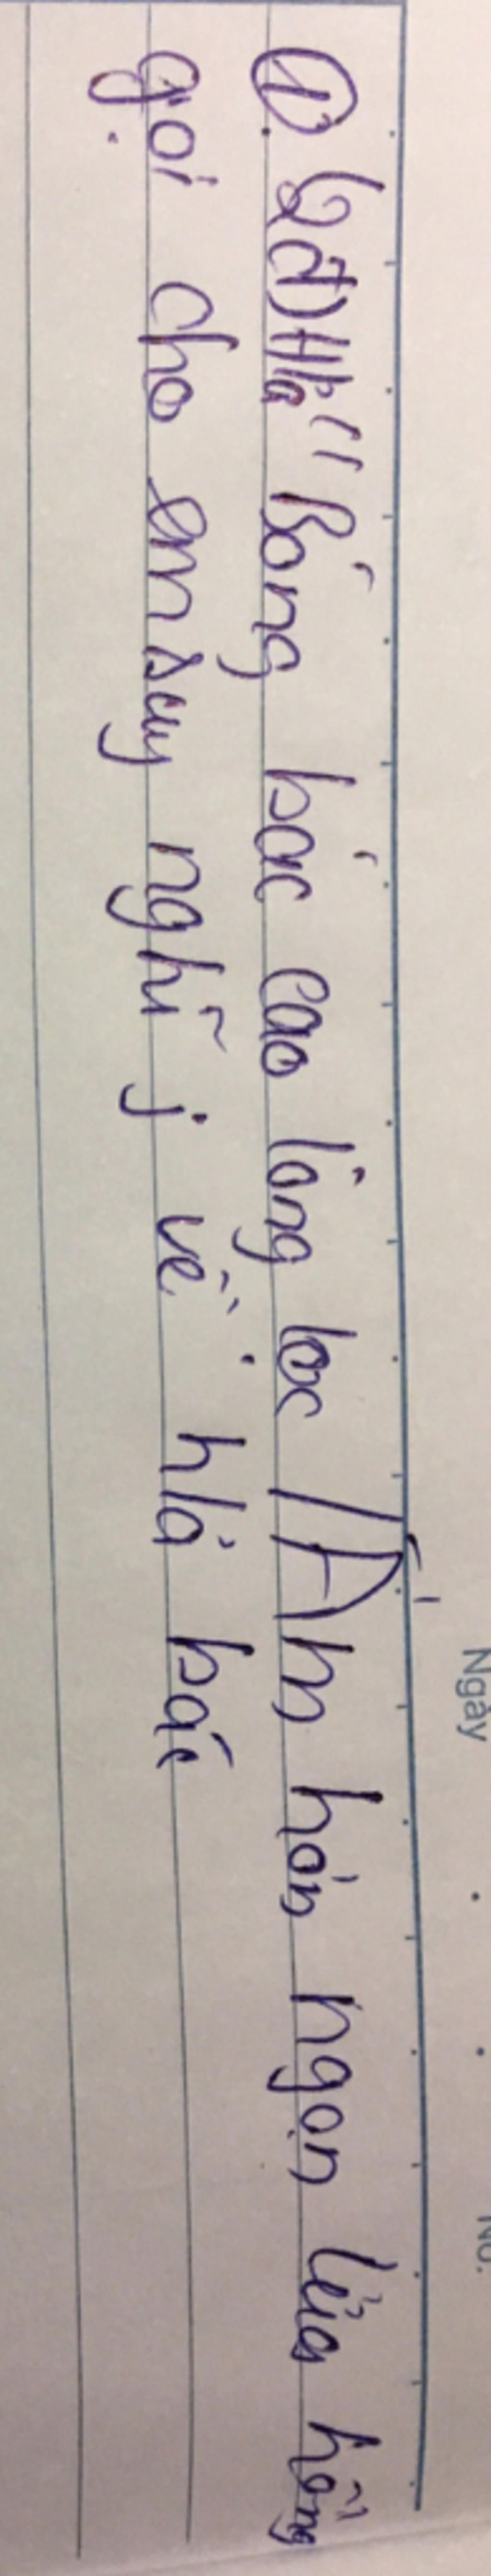 Ngày No.
①. 62đ) Hả " Bóng bác cao lồng lộc / Ấm hơn ngọn lửa hồng
gợi cho em suy nghĩ j về h/ả bác